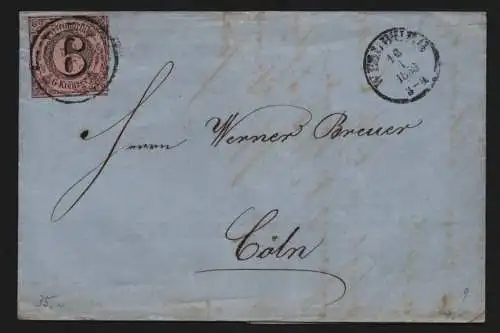 6
6 Kreuzer
18
1
3-4
Herrn Werner Breuer
Cöln
35.-